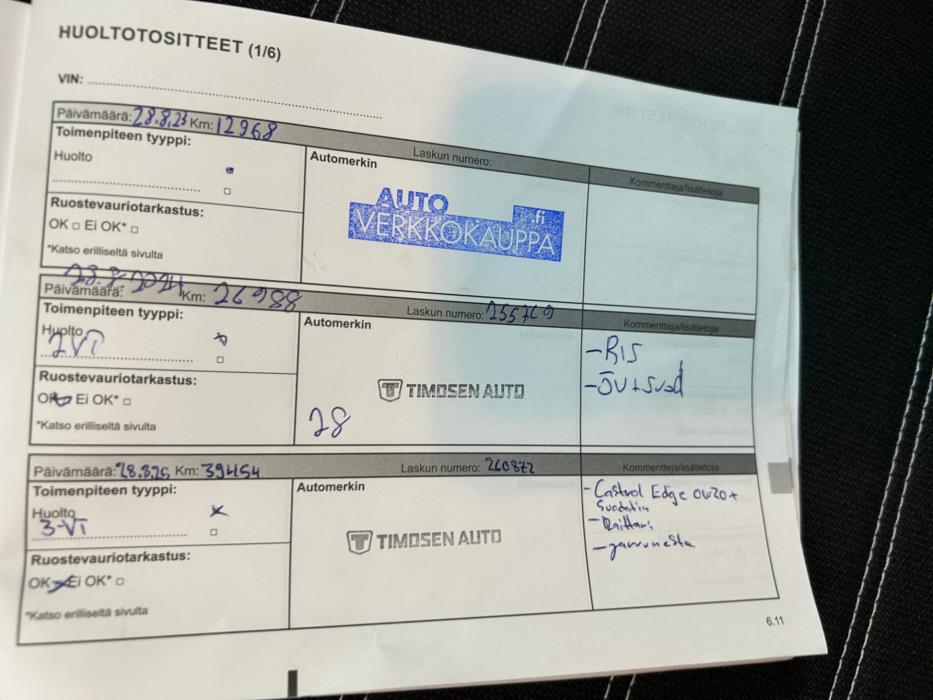 HUOLTOTOSITTEET (1/6)
VIN:
Päivämäärä: 28.8.23 Km: 12968
Laskun numero:
Kommentteja/lisätietoja
Toimenpiteen tyyppi:
Huolto
Automerkin
AUTO
VERKKOKAUPPA .fi
Ruostevauriotarkastus:
OK □ Ei OK* □
*Katso erilliseltä sivulta
Päivämäärä: 28.8.2024 Km: 26988
Laskun numero: 255769
Kommentteja/lisätietoja
Toimenpiteen tyyppi:
Huolto
2VT
Automerkin
TIMOSEN AUTO
28
-RIS
-ÖV+Suod
Ruostevauriotarkastus:
OK Ei OK* □
*Katso erilliseltä sivulta
Päivämäärä: 28.8.25 Km: 39454
Laskun numero: 260872
Kommentteja/lisätietoja
Toimenpiteen tyyppi:
Huolto
3-VT
Automerkin
TIMOSEN AUTO
- Castrol Edge 0W20 +
Suodatin
- Raittari
- jarruneste
Ruostevauriotarkastus:
OK Ei OK* □
*Katso erilliseltä sivulta
6.11